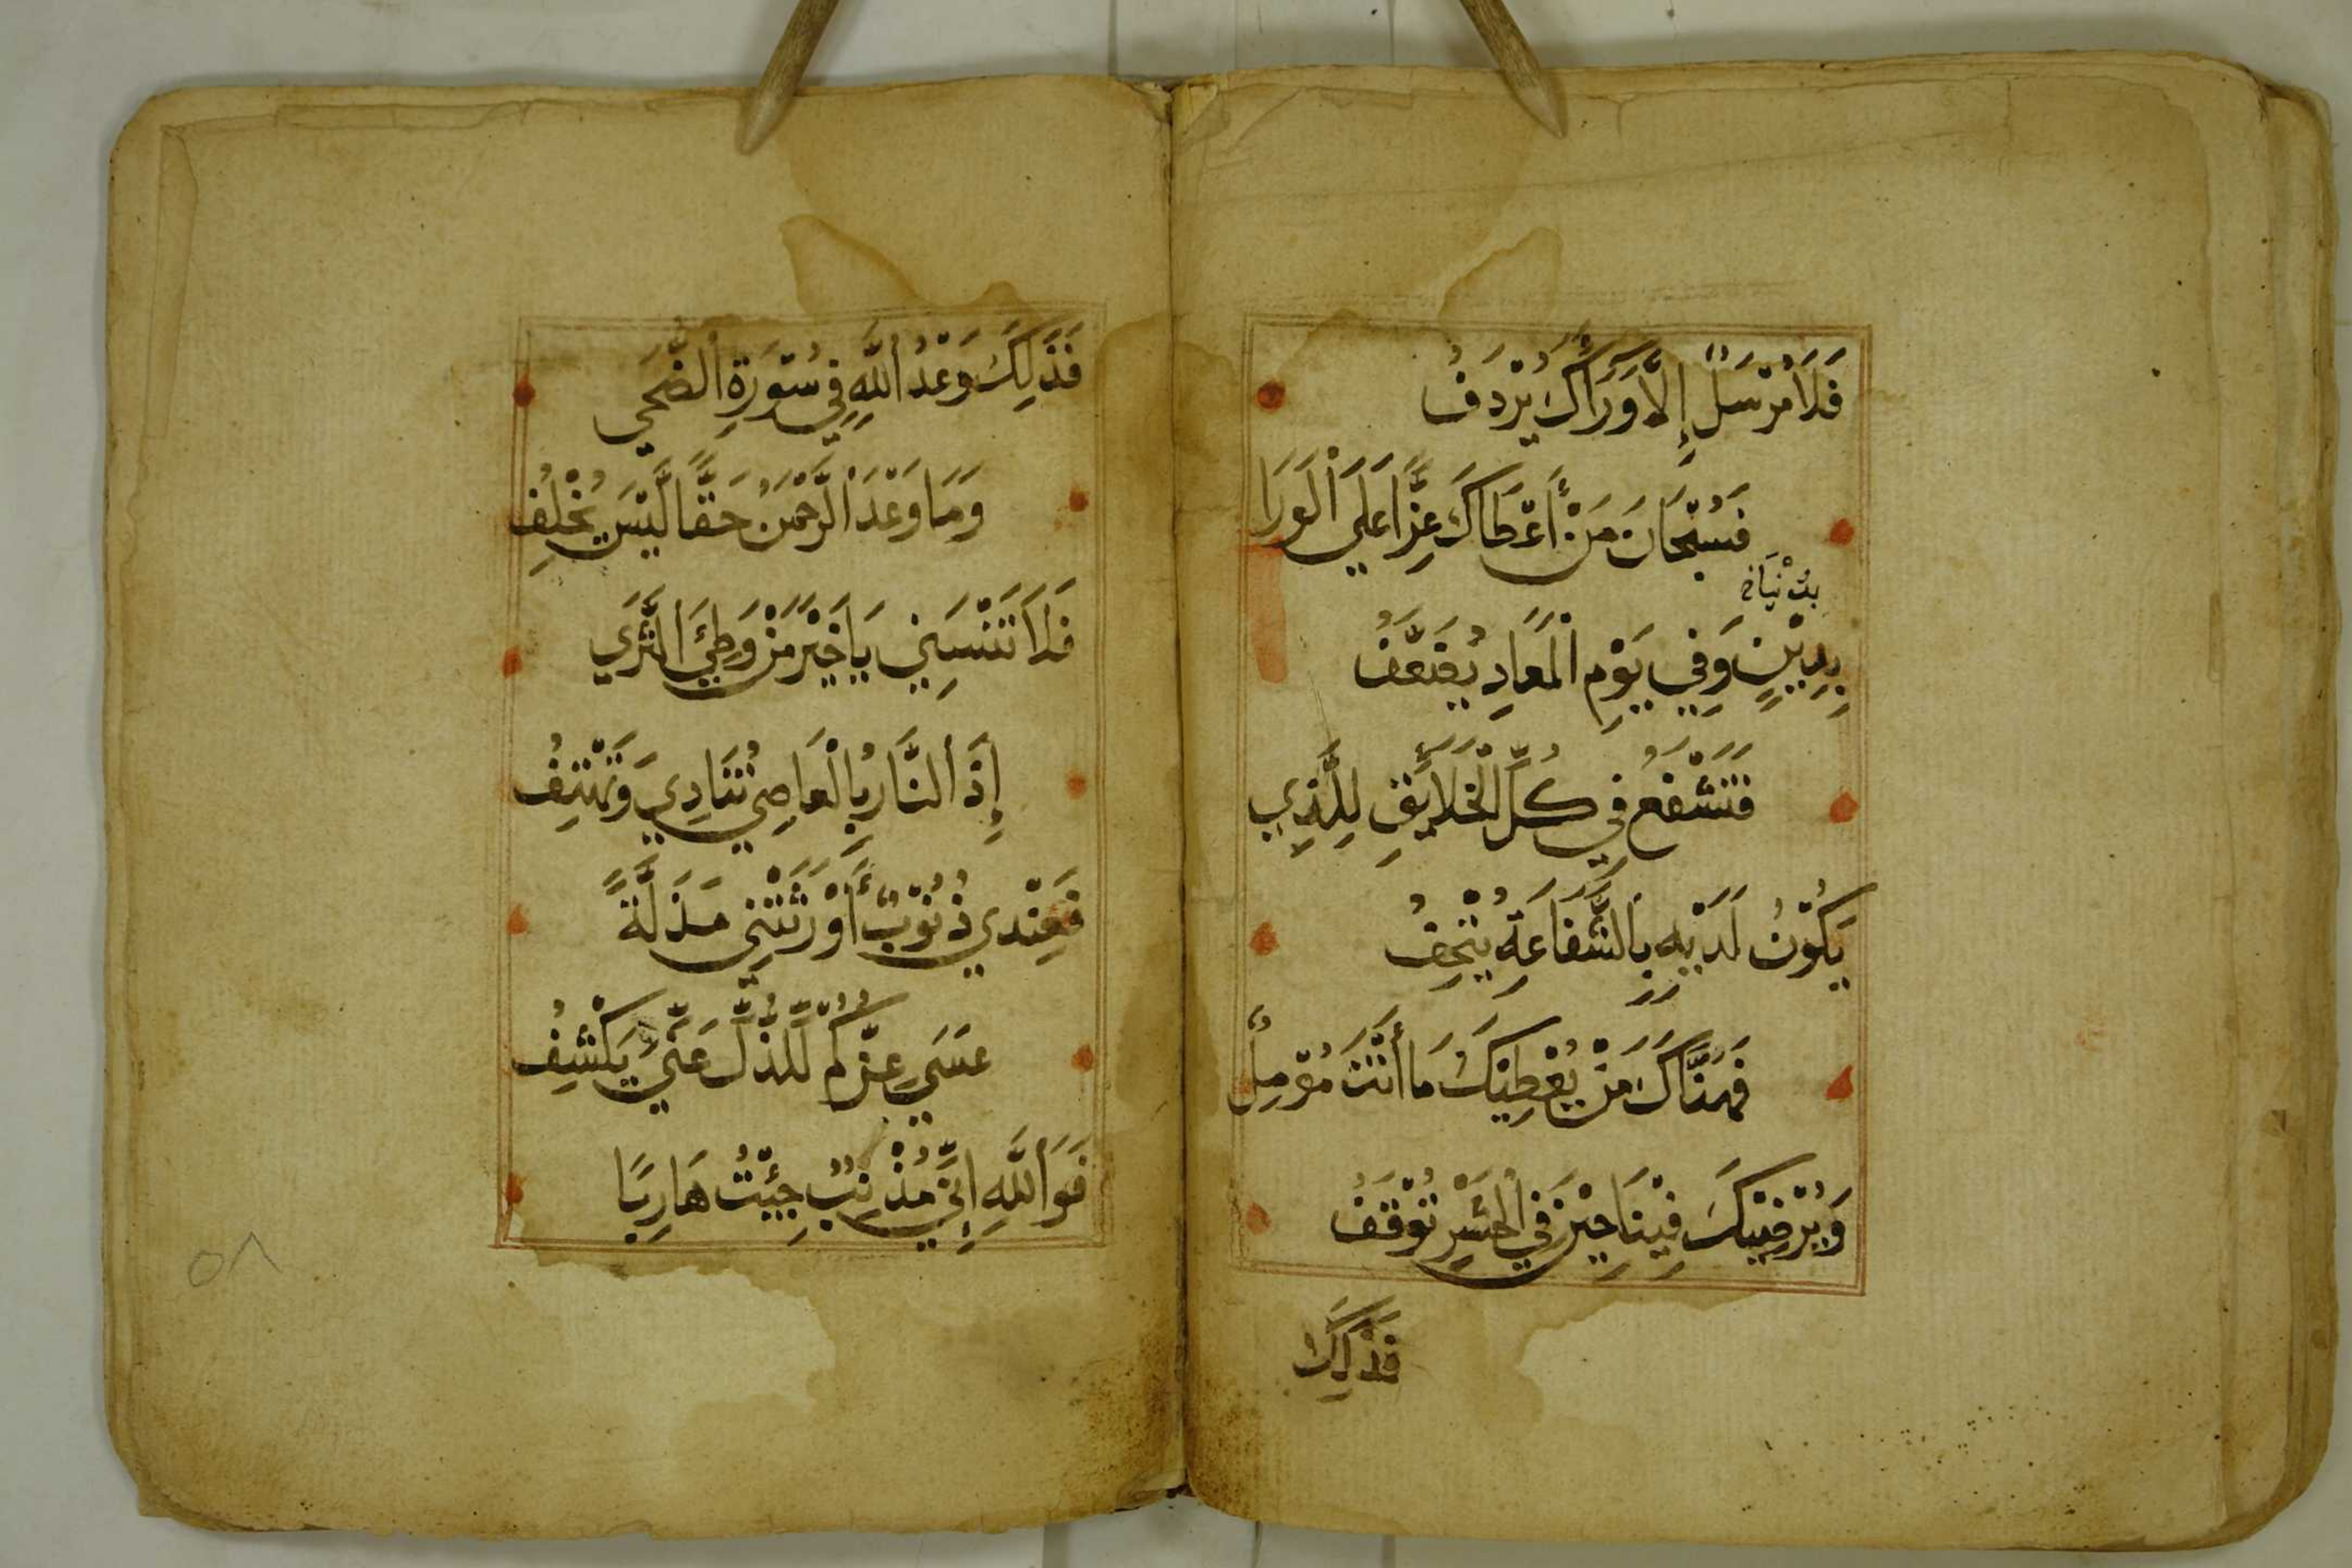 فَلَا مُرْسَلٌ إِلَّا وَرَاكَ يُرْدَفُ
فَسُبْحَانَ مَنْ أَعْطَاكَ عِزًّا عَلَى الْوَرَا
بِدُنْيَا خ
بِدِيْنٍ وَفِي يَوْمِ الْمَعَادِ يُضَعَّفُ
فَتَشْفَعُ فِي كُلِّ الْخَلَائِقِ لِلَّذِي
يَكُوْنُ لَدَيْهِ بِالشَّفَاعَةِ يُتْحِفُ
فَهُنَّاكَ مَنْ يُعْطِيْكَ مَا أَنْتَ مُؤْمِلٌ
وَيُرْضِيْكَ فِيْنَا حِيْنَ فِي الْحَشْرِ تُوْقَفُ
فَذَلِكَ
فَذَلِكَ وَعْدُ اللَّهِ فِي سُوْرَةِ الضُّحَى
وَمَا وَعَدَ الرَّحْمَنُ حَقًّا لَيْسَ يُخْلِفُ
فَلَا تَنْسَنِي يَا خَيْرَ مَنْ وَطِئَ الثَّرَى
إِذَ النَّارُ بِالْعَاصِي تُنَادِي وَتَهْتِفُ
فَعِنْدِي ذُنُوْبٌ أَوْرَثَتْنِي مَذَلَّةً
عَسَى عِزُّكُمْ لِلذُّلِّ عَنِّي يَكْشِفُ
فَوَاللَّهِ إِنِّي مُذْنِبٌ جِئْتُ هَارِبًا
٥٨